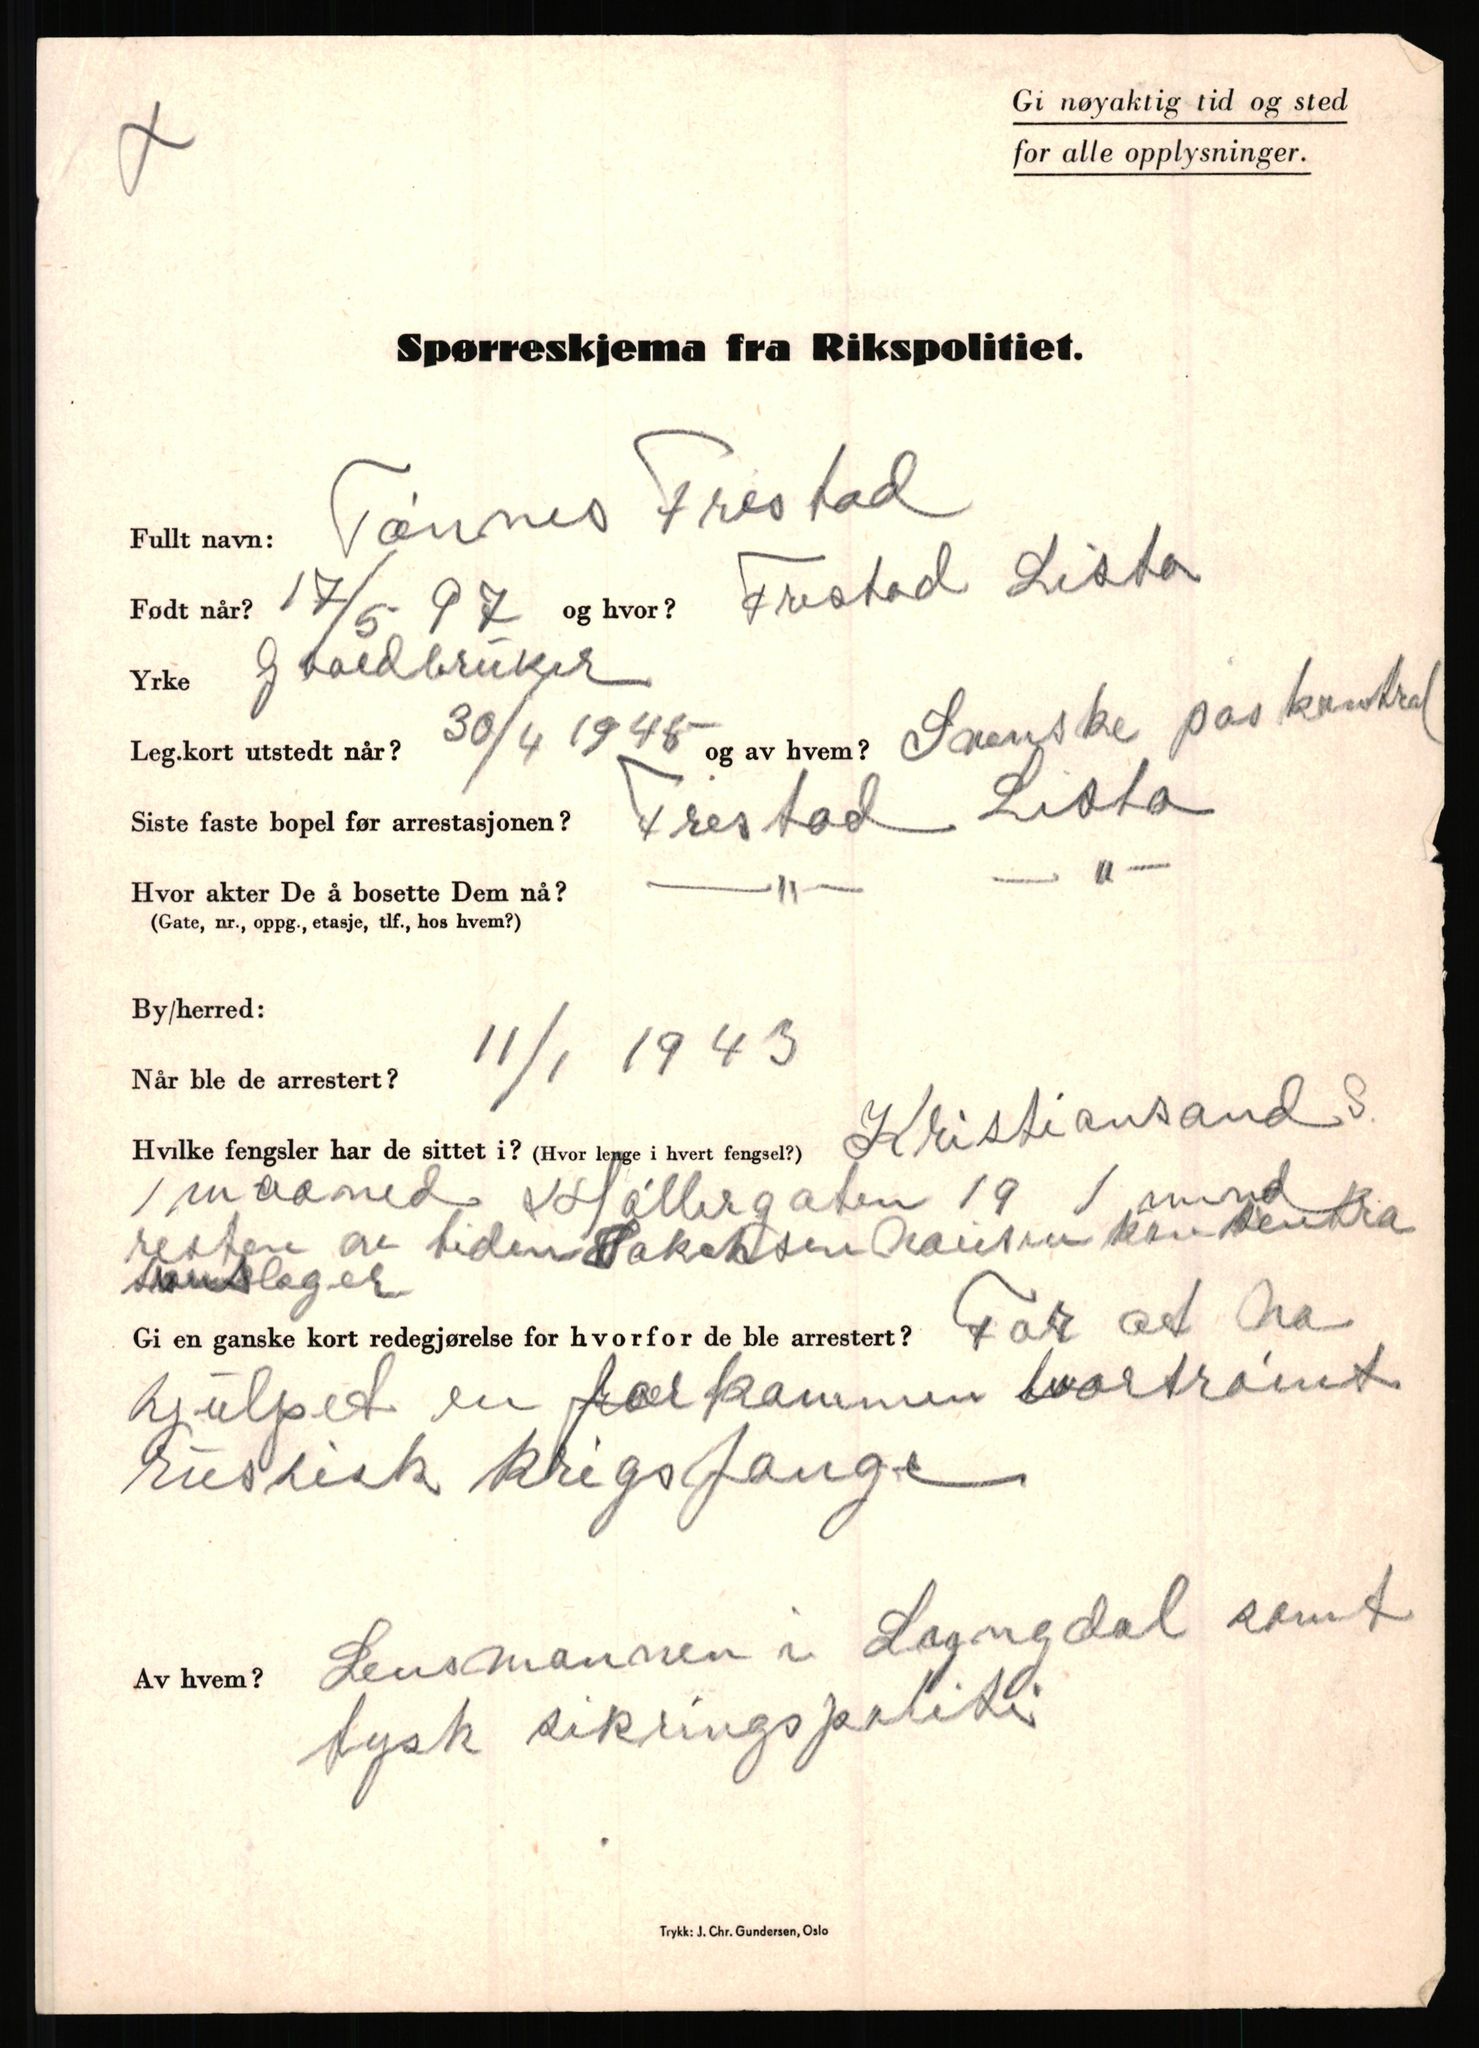 Gi nøyaktig tid og sted
for alle opplysninger.
Spørreskjema fra Rikspolitiet.
Fullt navn: Tønnes Frestad
Født når? 17/5 97 og hvor? Frestad Lista
Yrke Gaardbruker
Leg.kort utstedt når? 30/4 1945 og av hvem? Svenske paskontrol
Siste faste bopel før arrestasjonen? Frestad Lista
Hvor akter De å bosette Dem nå? —"— —"—
(Gate, nr., oppg., etasje, tlf., hos hvem?)
By/herred:
Når ble de arrestert? 11/1 1943
Hvilke fengsler har de sittet i? (Hvor lenge i hvert fengsel?) Kristiansand S.
1 maaned Møllergaten 19 1 mnd
resten av tiden Sakchsenhausen konsentra
sionslager
Gi en ganske kort redegjørelse for hvorfor de ble arrestert? For at ha
hjulpet en forkommen bortrømt
russisk krigsfange
Av hvem? Lensmannen i Lyngdal samt
tysk sikringspoliti
Trykk: J. Chr. Gundersen, Oslo